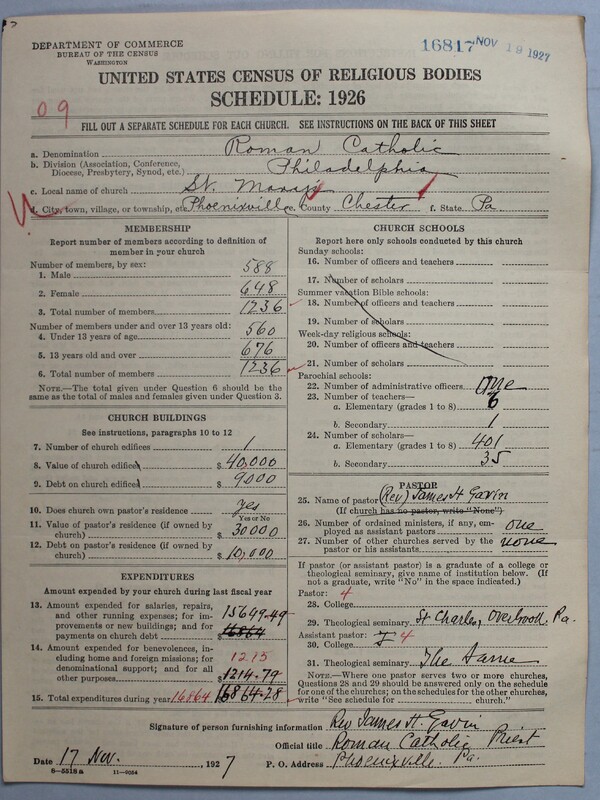 DEPARTMENT OF COMMERCE
BUREAU OF THE CENSUS
WASHINGTON
16817 NOV 19 1927
UNITED STATES CENSUS OF RELIGIOUS BODIES
SCHEDULE: 1926
09
FILL OUT A SEPARATE SCHEDULE FOR EACH CHURCH. SEE INSTRUCTIONS ON THE BACK OF THIS SHEET
a. Denomination Roman Catholic
b. Division (Association, Conference, Diocese, Presbytery, Synod, etc.) Philadelphia
c. Local name of church St. Mary's
d. City, town, village, or township, etc. Phoenixville e. County Chester f. State Pa
MEMBERSHIP
Report number of members according to definition of
member in your church
Number of members, by sex:
1. Male 588
2. Female 648
3. Total number of members 1236
Number of members under and over 13 years old:
4. Under 13 years of age 560
5. 13 years old and over 676
6. Total number of members 1236
NOTE.—The total given under Question 6 should be
same as the total of males and females given under Question 3.
CHURCH BUILDINGS
See instructions, paragraphs 10 to 12
7. Number of church edifices 1
8. Value of church edifice $ 40,000
9. Debt on church edifice $ 9000
10. Does church own pastor's residence yes
Yes or No
11. Value of pastor's residence (if owned by
church) $ 30000
12. Debt on pastor's residence (if owned by
church) $ 10,000
EXPENDITURES
Amount expended by your church during last fiscal year
13. Amount expended for salaries, repairs,
and other running expenses; for im-
provements or new buildings; and for
payments on church debt $ 15649.49
16864
14. Amount expended for benevolences, in-
cluding home and foreign missions; for
denominational support; and for all
other purposes $ 1214.79
1215
15. Total expenditures during year 16864 16864.28
CHURCH SCHOOLS
Report here only schools conducted by this church
Sunday schools:
16. Number of officers and teachers
17. Number of scholars
Summer vacation Bible schools:
18. Number of officers and teachers
19. Number of scholars
Week-day religious schools:
20. Number of officers and teachers
21. Number of scholars
Parochial schools:
22. Number of administrative officers one
23. Number of teachers—
a. Elementary (grades 1 to 8) 6
b. Secondary 1
24. Number of scholars—
a. Elementary (grades 1 to 8) 401
b. Secondary 35
PASTOR
25. Name of pastor (Rev) James H Gavin
(If church has no pastor, write "None")
26. Number of ordained ministers, if any, em-
ployed as assistant pastors one
27. Number of other churches served by the
pastor or his assistants none
If pastor (or assistant pastor) is a graduate of a college or
theological seminary, give name of institution below. (If
not a graduate, write "No" in the space indicated.)
Pastor: 4
28. College
29. Theological seminary St Charles, Overbrook. Pa.
Assistant pastor: 4
30. College
31. Theological seminary The Same
NOTE.—Where one pastor serves two or more churches,
Questions 28 and 29 should be answered only on the schedule
for one of the churches; on the schedules for the other churches,
write "See schedule for church."
Signature of person furnishing information Rev James H. Gavin
Official title Roman Catholic Priest
Date 17 Nov., 1927 P. O. Address Phoenixville. Pa.
8-5518a 11-6054